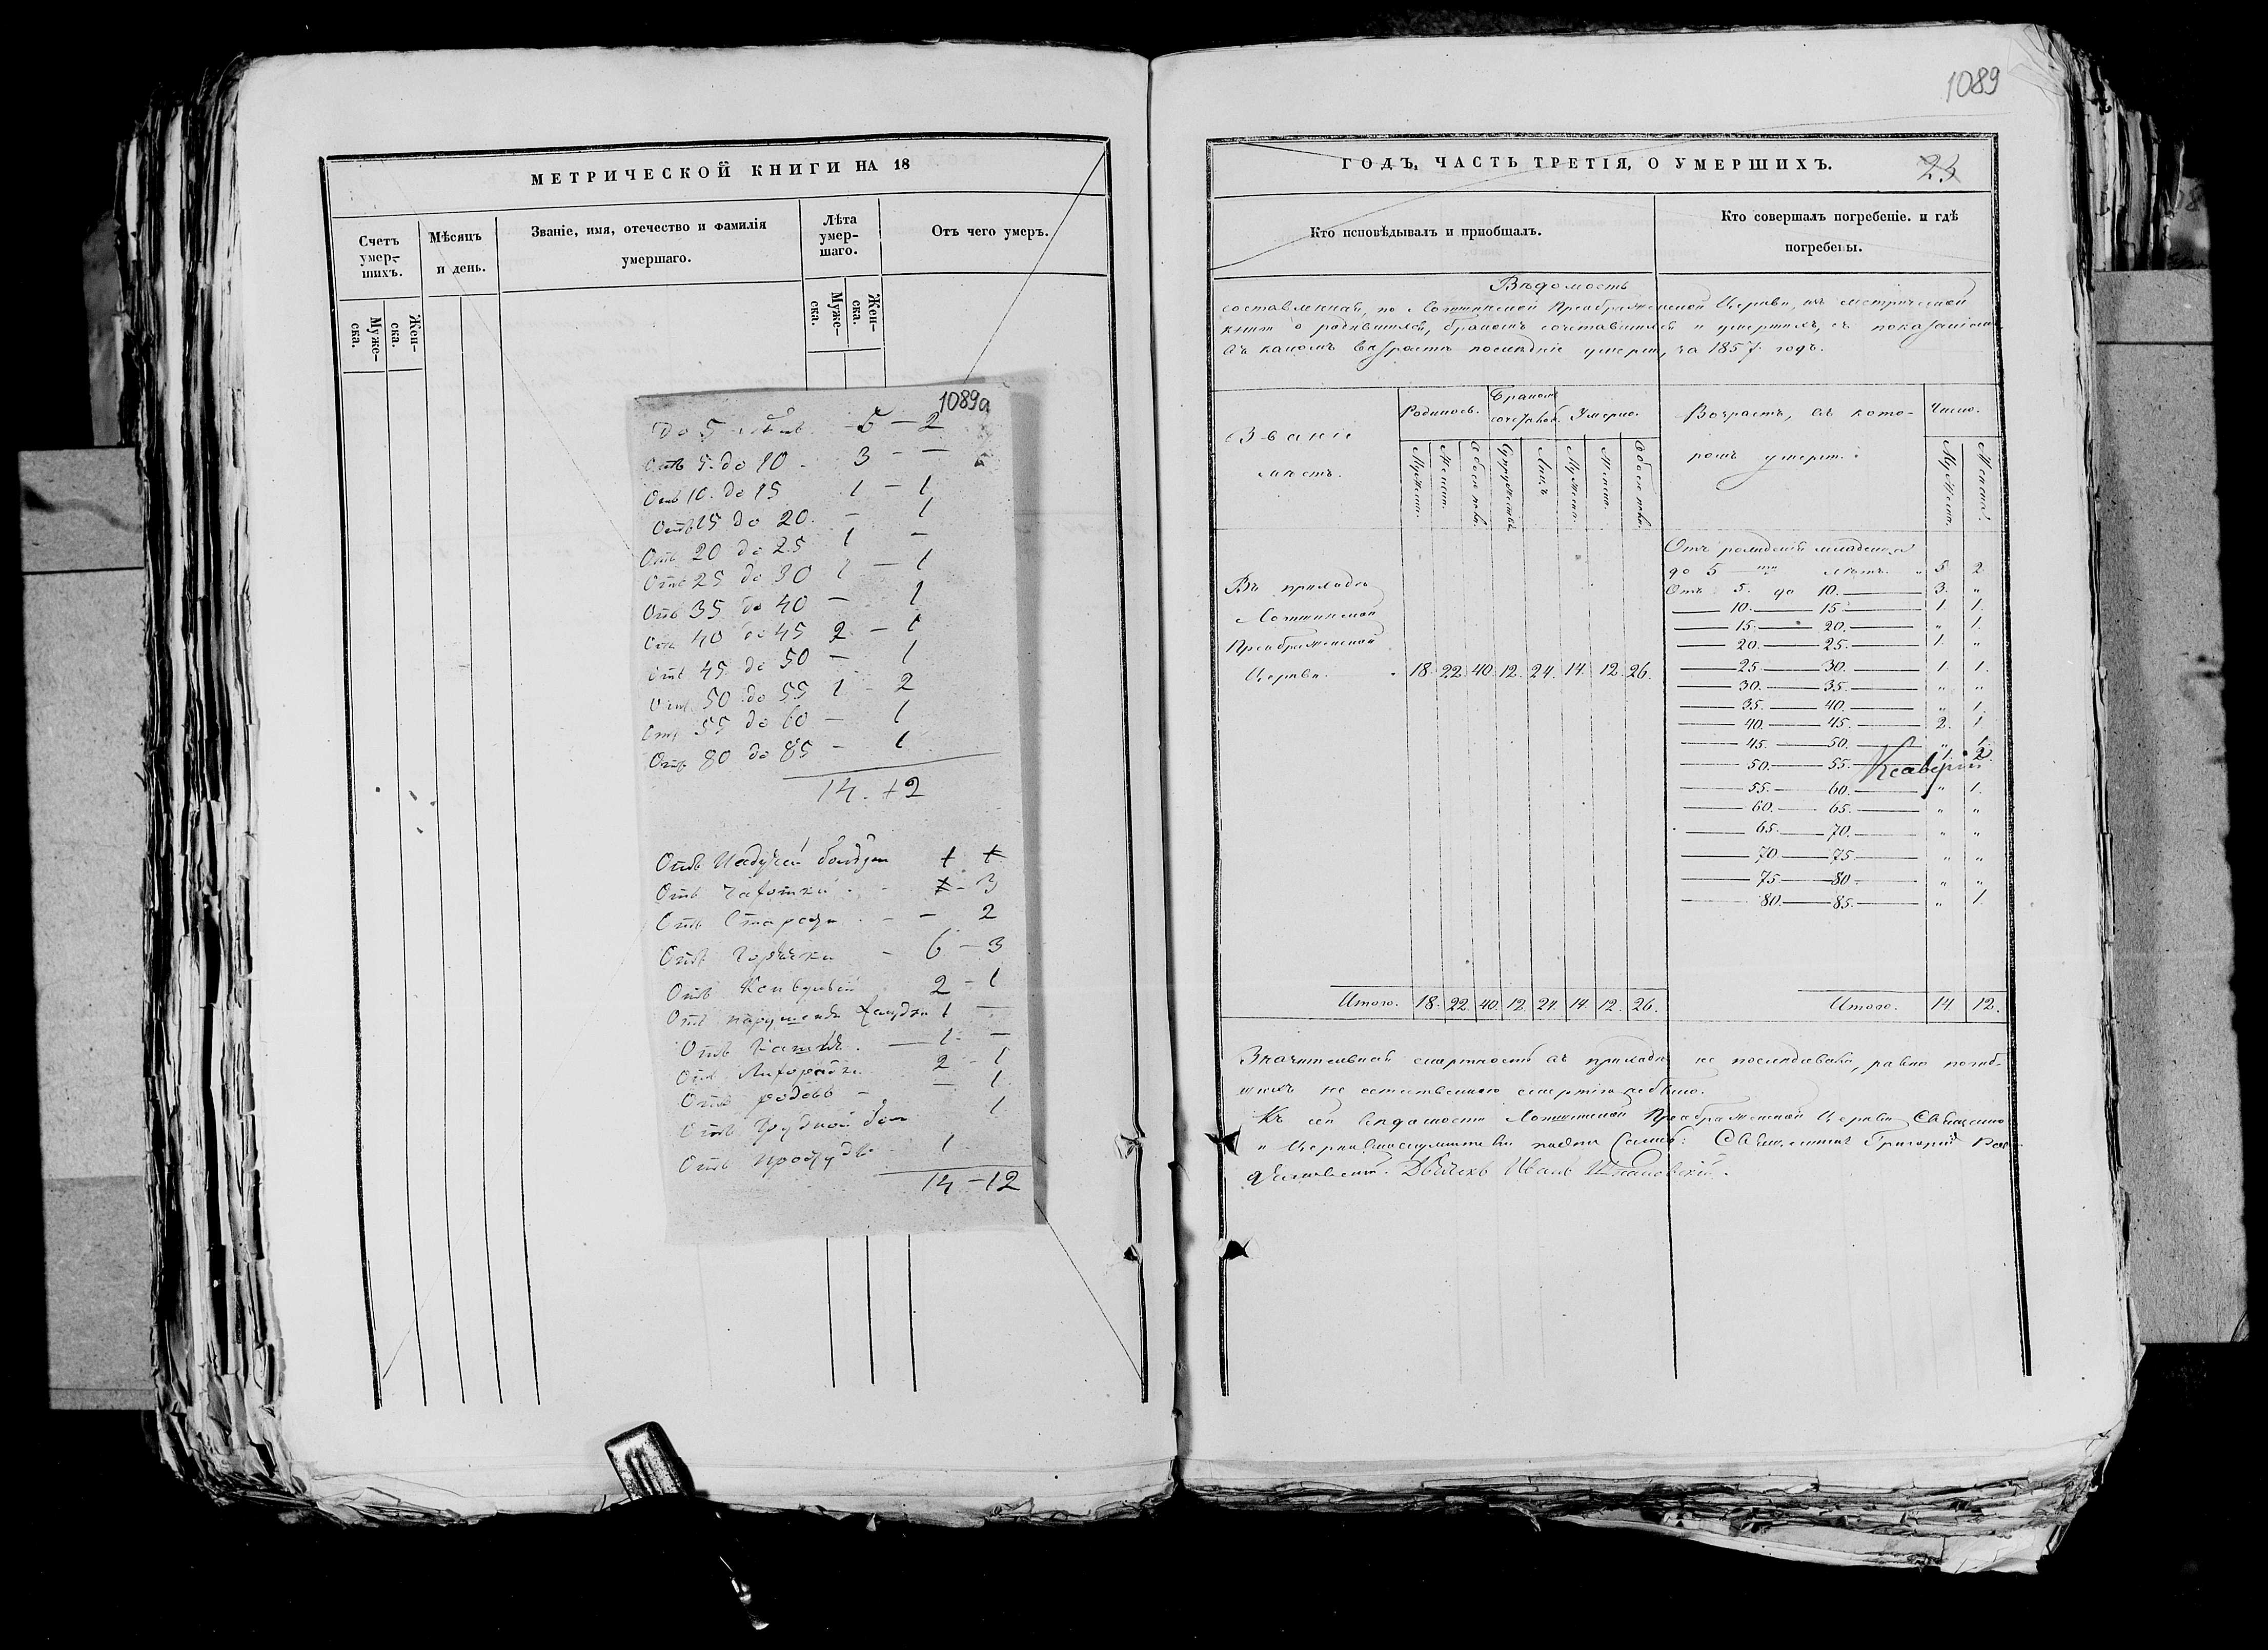 МЕТРИЧЕСКОЙ КНИГИ НА 18
Счетъ умер-шихъ.
Муже-ска.
Жен-ска.
Мѣсяцъ и день.
Званіе, имя, отечество и фамилія умершаго.
Лѣта умер-шаго.
Муже-ска.
Жен-ска.
Отъ чего умеръ.
1089а
до 5 5 — 2
Отъ 5. до 10 3 — —
Отъ 10. до 15 1 — 1
Отъ 15 до 20. — 1
Отъ 20 до 25 1 —
Отъ 25 до 30 1 — 1
Отъ 35 до 40 — 1
Отъ 40 до 45 2 — 1
Отъ 45 до 50 — 1
Отъ 50 до 55 1 — 2
Отъ 55 до 60 — 1
Отъ 80 до 85 — 1
14. 12
Отъ падучей болѣзни
Отъ Чахотки 3
Отъ Старости — 2
Отъ Горячки 6 — 3
Отъ Конвульсій 2 — 1
Отъ желудка 1 —
Отъ Кашля. — 1 —
Отъ Лихорадки 2 — 1
Отъ родовъ — 1
Отъ Грудной бол 1
Отъ простуды 1
14 — 12
1089
ГОДЪ, ЧАСТЬ ТРЕТІЯ, О УМЕРШИХЪ.
23
Кто исповѣдывалъ и пріобщалъ.
Кто совершалъ погребеніе. и гдѣ погребены.
Вѣдомость
составленная, по Преображенской Церкви, изъ метрической
книги о родившихся, бракомъ сочетавшихся и умершихъ, съ показаніемъ
въ какомъ возрастѣ послѣдніе умерли, за 1857. годъ.
Званіе мѣстъ.
Родилось.
Мужеска.
Женска.
Обоего пола.
Бракомъ
Супружествъ.
Лицъ.
Умерло.
Мужеска.
Женска.
Обоего пола.
Возрастъ, въ кото-ромъ умерли.
Число.
Мужеска.
Женска.
Въ приходѣ
Преображенской
Церкви. 18. 22. 40. 12. 24. 14. 12. 26.
Отъ рожденія младенца
до 5 ти лѣтъ. 5 2
Отъ 5. до 10. 3. „
10. 15. 1. 1.
15. 20. „ 1.
20. 25. 1. „
25. 30. 1. 1.
30. 35. „ „
35. 40. „ 1.
40. 45. 2. 1.
45. 50. „ 1.
50. 55. 1. 2.
Ксаверій
55. 60. „ 1.
60. 65. „ „
65. 70. „ „
70. 75. „ „
75 80. „ „
80. 85. „ 1.
Итого. 18. 22. 40. 12. 24. 14. 12. 26.
Итого. 14. 12.
Значительной смертности въ приходѣ не послѣдовало, равно погиб-
шихъ не естественною смертію не было.
Къ сей вѣдомости Преображенской Церкви Священно
и Церковнослужители Священникъ Григорій
Дьячекъ Иванъ